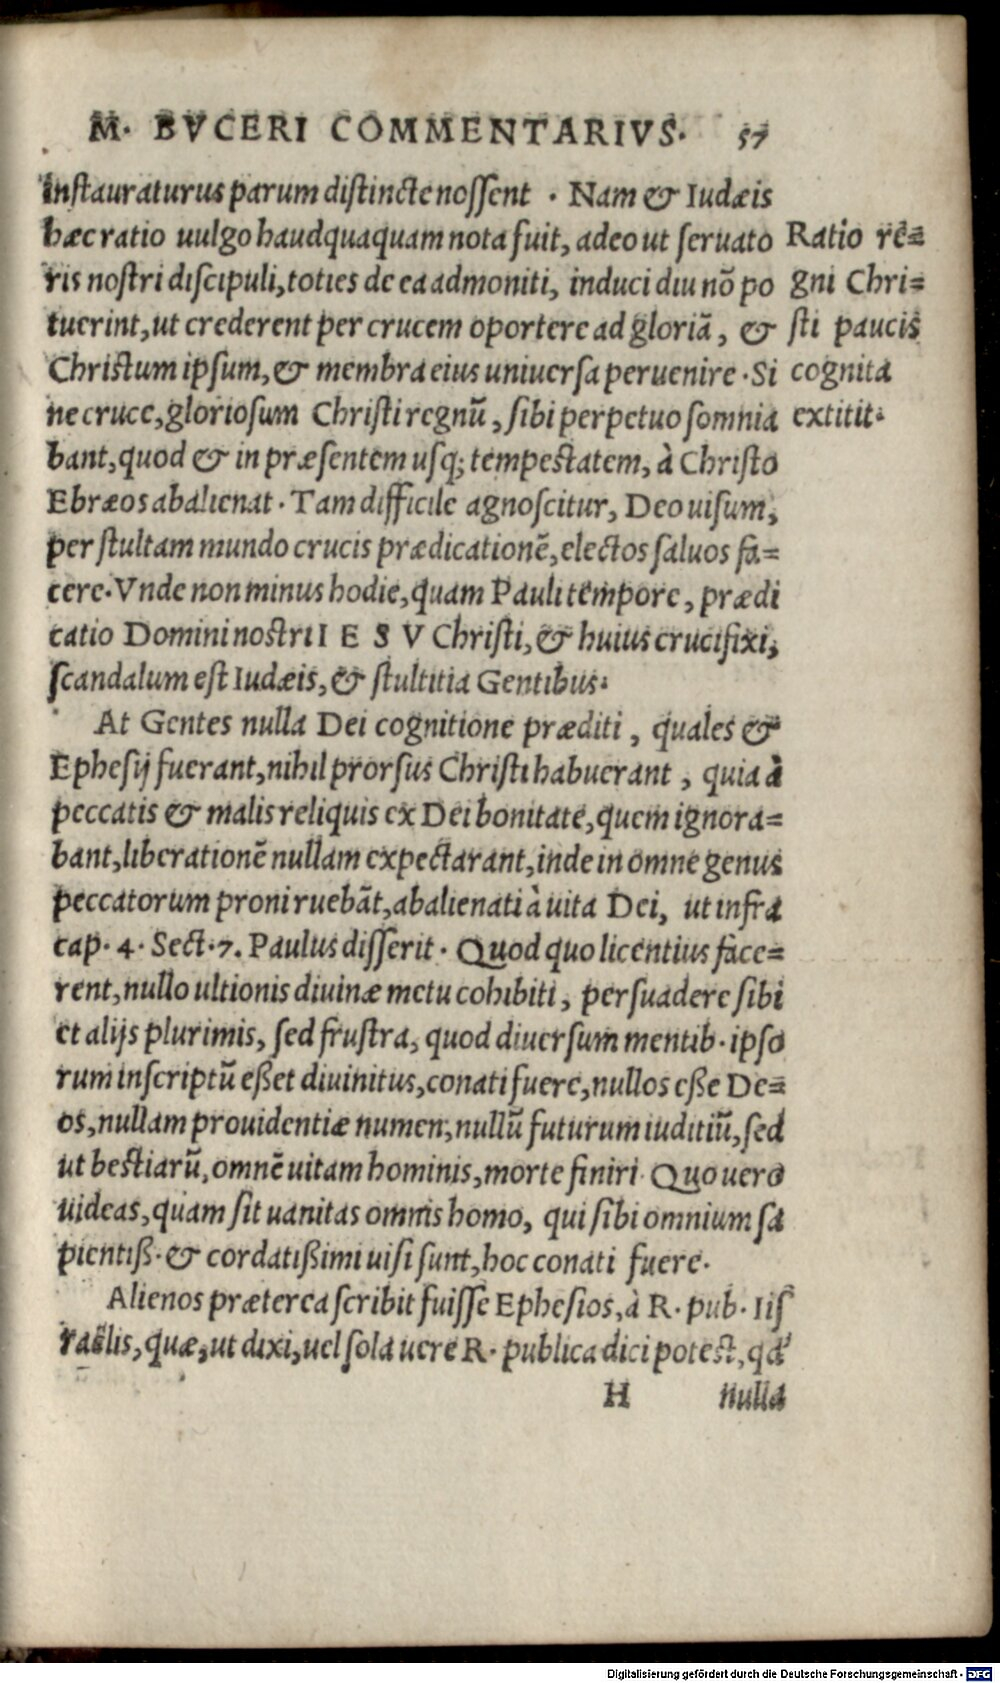 M. BVCERI COMMENTARIVS. 57
instauraturus parum distincte nossent . Nam & Iudæis
hæc ratio uulgo haudquaquam nota fuit, adeo ut seruato
ris nostri discipuli, toties de ea admoniti, induci diu nõ po
tuerint, ut crederent per crucem oportere ad gloriã, &
Christum ipsum, & membra eius uniuersa peruenire. Si
ne cruce, gloriosum Christi regnũ, sibi perpetuo somnia
bant, quod & in præsentem usq; tempestatem, à Christo
Ebræos abalienat. Tam difficile agnoscitur, Deo uisum,
per stultam mundo crucis prædicationẽ, electos saluos fa=
cere. Vnde non minus hodie, quam Pauli tempore, prædi
catio Domini nostri I E S V Christi, & huius crucifixi,
scandalum est Iudæis, & stultitia Gentibus.
Ratio re=
gni Chri=
sti paucis
cognita
extitit.
At Gentes nulla Dei cognitione præditi, quales &
Ephesij fuerant, nihil prorsus Christi habuerant, quia à
peccatis & malis reliquis ex Dei bonitate, quem ignora=
bant, liberationẽ nullam expectarant, inde in omne genus
peccatorum proni ruebãt, abalienati à uita Dei, ut infra
cap. 4. Sect. 7. Paulus disserit. Quod quo licentius face=
rent, nullo ultionis diuinæ metu cohibiti, persuadere sibi
et alijs plurimis, sed frustra, quod diuersum mentib. ipso
rum inscriptũ eßet diuinitus, conati fuere, nullos eße De=
os, nullam prouidentiæ numen, nullũ futurum iuditiũ, sed
ut bestiarũ, omnẽ uitam hominis, morte finiri. Quo uero
uideas, quam sit uanitas omnis homo, qui sibi omnium sa
pientiß. & cordatißimi uisi sunt, hoc conati fuere.
Alienos præterea scribit fuisse Ephesios, à R. pub. Iis
raëlis, quæ, ut dixi, uel sola uere R. publica dici potest, qđ
H nulla
Digitalisierung gefördert durch die Deutsche Forschungsgemeinschaft - DFG